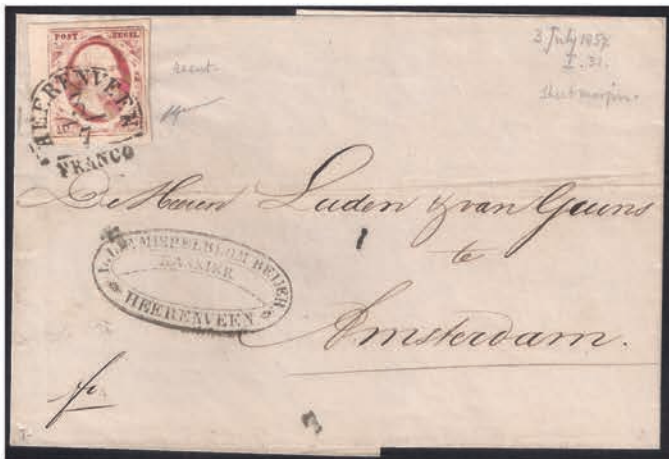 POST ZEGEL
10
HEERENVEEN
FRANCO
3 July 1857
I. 31.
Sheet margin.
De Heeren Luden & van Geuns
te
Amsterdam.
KASSIER
HEERENVEEN
fr